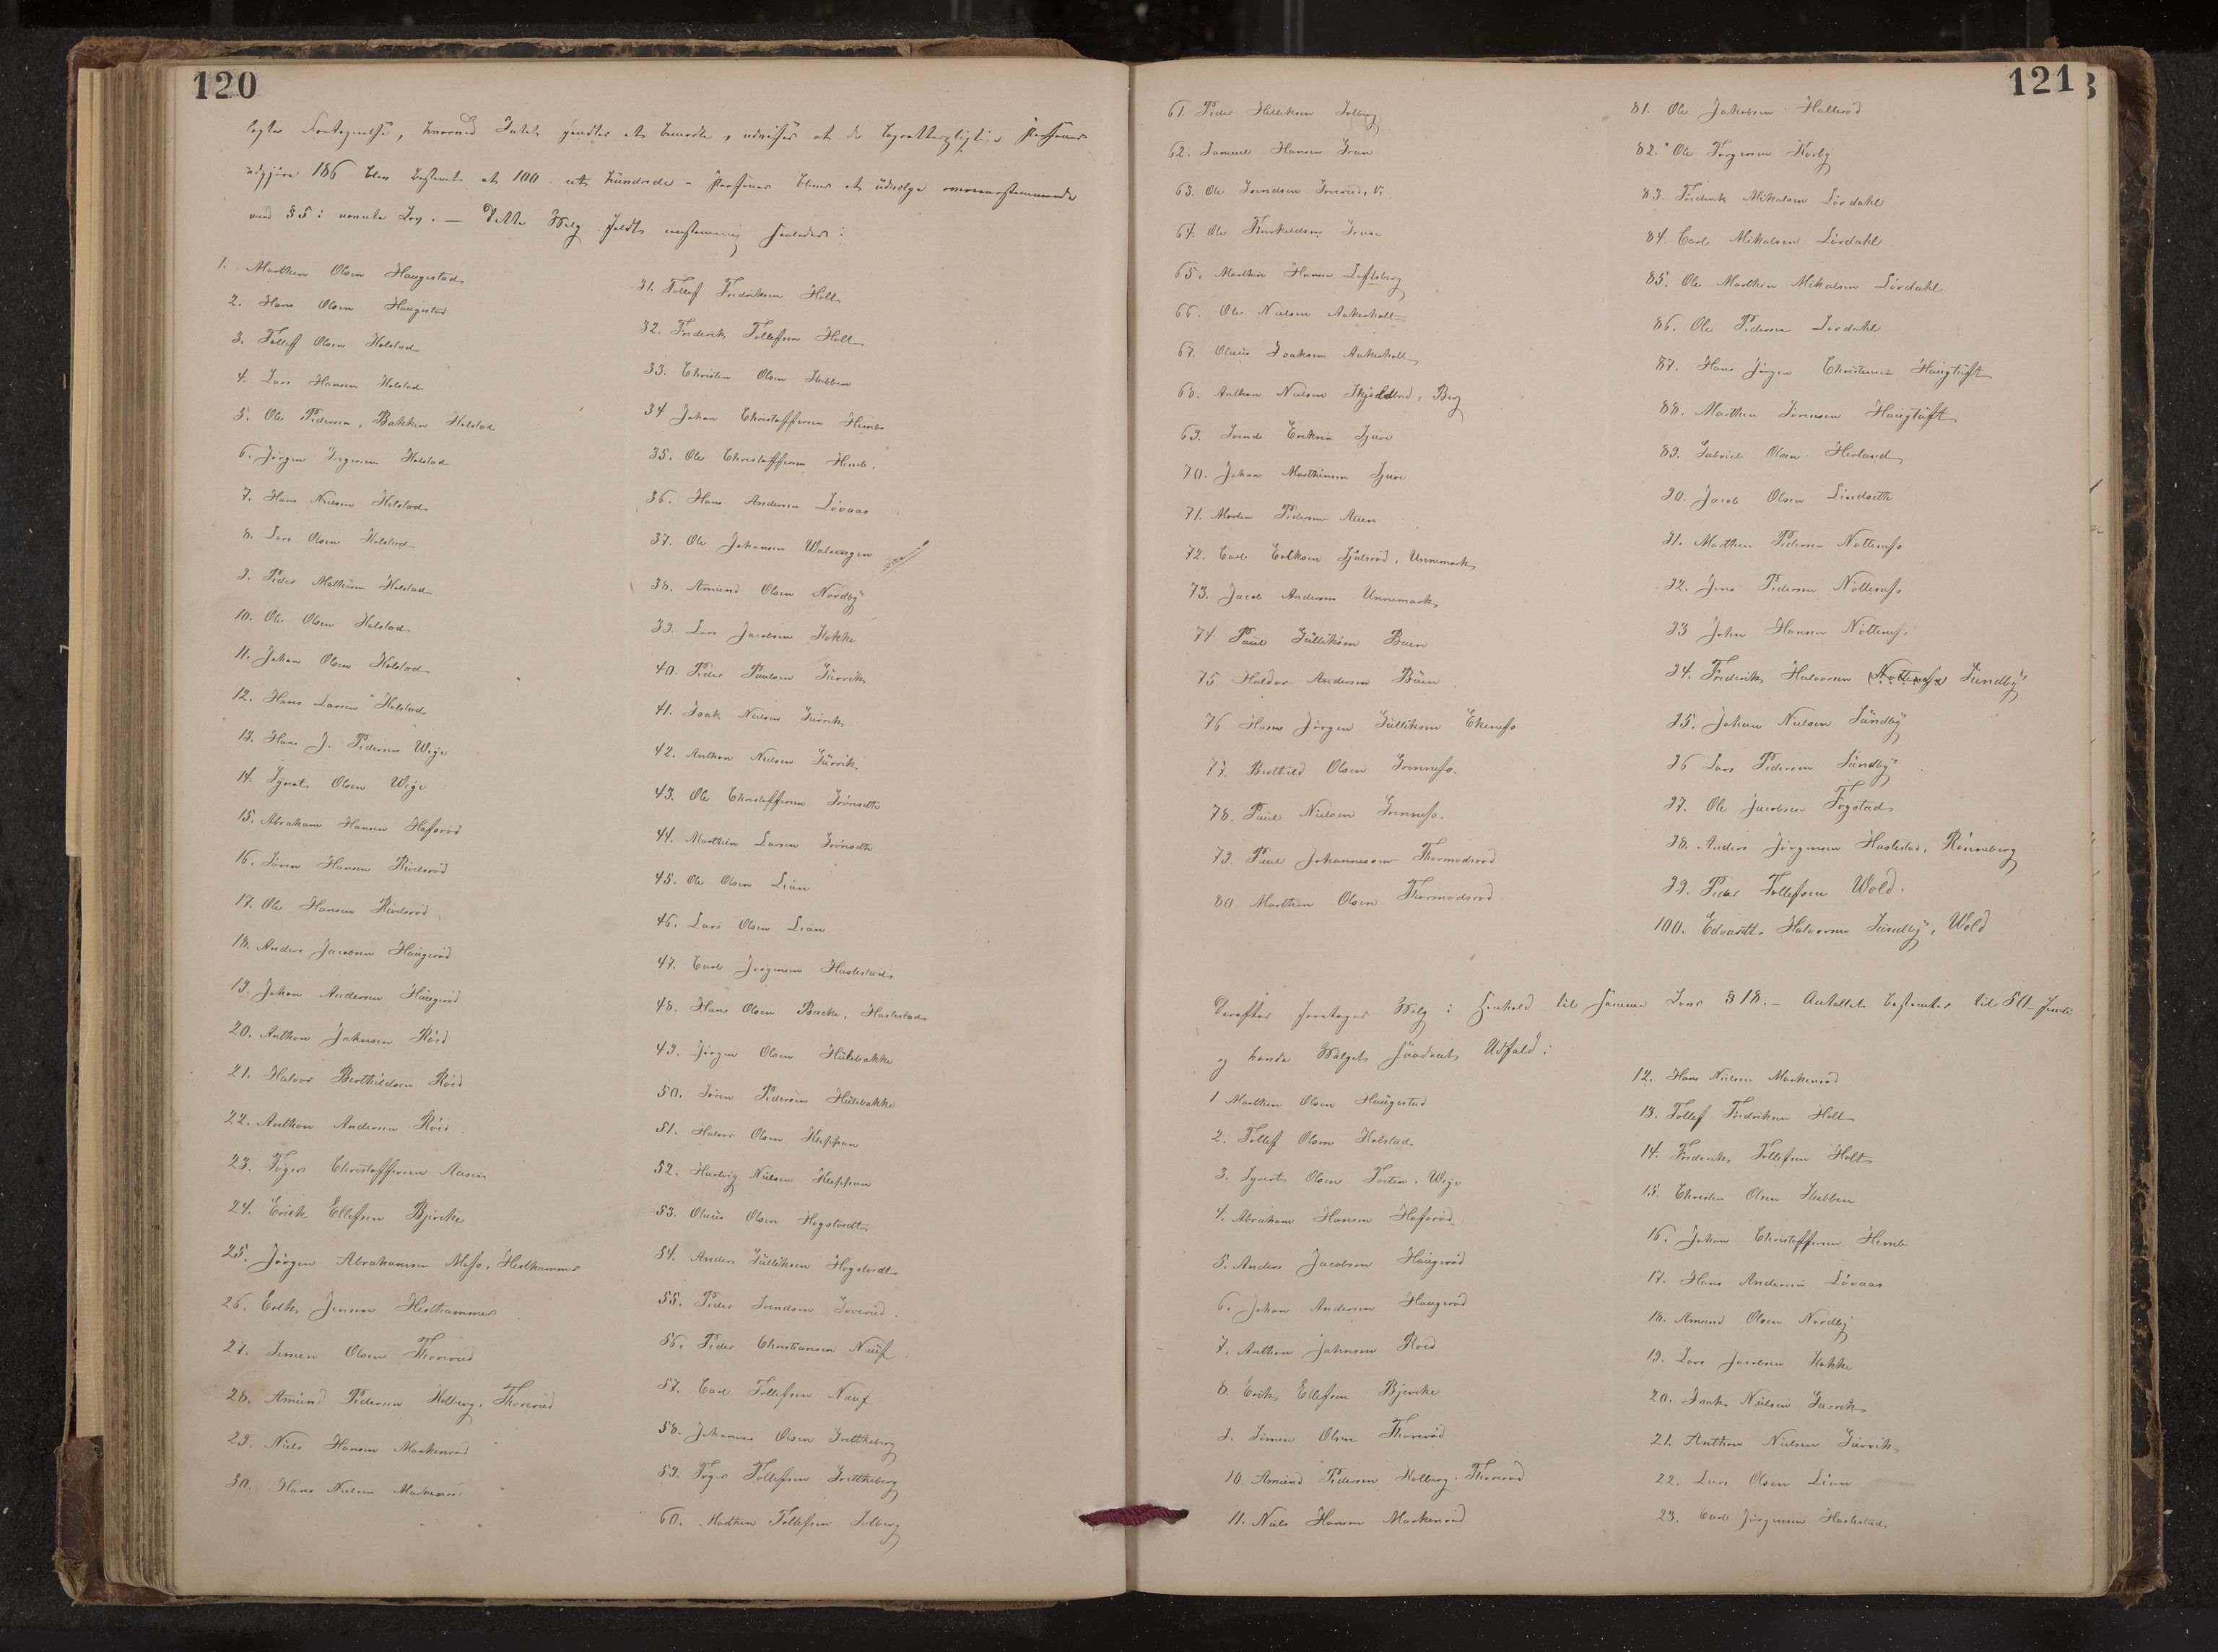 120
lagte Fortegnelse, hvorved Intet fandtes at bemærke, udvises at de lagrettepligtige Personer
udgjøre 186 blev bestemt at 100 - et hundrede - Personer bliver at udvælge overensstemmende
med § 5 i nævnte Lov. — Dette Valg faldt enstemmig saaledes:
1. Marthin Olsen Haugestad
2. Hans Olsen Haugestad
3. Tollef Olsen Holstad
4. Lars Hansen Holstad
5. Ole Pedersen, Bakken Holstad
6. Jörgen Holstad
7. Hans Nielsen Holstad
8. Lars Olsen Holstad
9. Peder Mathisen Holstad
10. Ole Olsen Holstad
11. Johan Olsen Holstad
12. Hans Larsen Holstad
13. Hans J. Pedersen Wege
14. Syvert Olsen Wege
15. Abraham Hansen Hafsröd
16. Sören Hansen
17. Ole Hansen
18. Anders Jacobsen Haugeröd
19. Johan Andersen Haugeröd
20. Anthon Jahnsen Röed
21. Halvor Berthildsen Röed
22. Anthon Andersen Röed
23. Töger Christoffersen Aasen
24. Erich Ellefsen Bjercke
25. Jörgen Abrahamsen Moss, Hesthammer
26. Erik Jensen Hesthammer
27. Simen Olsen Thoreröd
28. Amund Pedersen Holberg, Thoreröd
29. Niels Hansen Markeröd
30. Hans Nielsen Markeröd
31. Tollef Fredriksen Holt
32. Frederik Tollefsen Holt
33. Christen Olsen Stubben
34 Johan Christoffersen Hemb
35. Ole Christoffersen Hemb.
36. Hans Andersen Lövaas
37. Ole Johansen
38. Amund Olsen Nordby
39. Lars Jacobsen Kokke
40. Peder Paulsen Gurrik
41. Isak Nielsen Gurrik
42. Anthon Nielsen Gurrik
43. Ole Christoffersen Grönseth
44. Marthin Larsen Grönseth
45. Ole Olsen Lian
46. Lars Olsen Lian
47. Carl Jörgensen Haslestad
48. Hans Olsen Bache, Haslestad
49. Jörgen Olsen Hulebakke
50. Sören Pedersen Hulebakke
51. Halvor Olsen Kleppan
52. Hartvig Nielsen Kleppan
53. Olaus Olsen Hogstvedt
54. Anders Gulliksen Hogstvedt
55. Peder Svendsen
56. Peder Christiansen Nauf
57. Carl Tollefsen Nauf
58. Johannes Olsen Gretteberg
59. Töger Tollefsen Gretteberg
60. Mathien Tollefsen Solberg
121
61. Peder Helliksen Solberg
62. Samuel Hansen
63. Ole Svendsen
64. Ole Thorkildsen
65. Marthin Hansen Loftsberg
66. Ole Nielsen Ankerholt
67. Olaus Isaksen Ankerholt
68. Anthon Nielsen Berg
69. Svend Eriksen Gjuve
70. Johan Marthinsen Gjuve
71. Morten Pedersen Auen
72. Carl Eriksen Unnemark
73. Jacob Andersen Unnemark
74 Paul Gulliksen Buen
75 Haldor Andersen Buen
76 Hans Jörgen Gulliksen Ekeness
77. Berthild Olsen Grenness.
78. Paul Nielsen Grenness.
79. Paul Johannessen Thormodsröd
80 Marthin Olsen Thormodsröd.
81. Ole Jakobsen Hilleröd
82. Ole Torgersen Horby
83. Frederik Mikalsen Lördahl
84. Carl Mikalsen Lördahl
85. Ole Marthin Mikalsen Lördahl
86. Ole Pedersen Lördahl
87. Hans Jörgen Christensen Haugtuft
88. Marthin Sörensen Haugtuft
89. Gabriel Olsen Herland
90. Jacob Olsen Lindseth
91. Marthin Pedersen Nötteness
92. Jens Pedersen Nötteness
93 John Hansen Nötteness
94. Frederik Halvorsen Nötteness Sundby
95. Johan Nielsen Sundby
96 Lars Pedersen Sundby
97. Ole Jacobsen Fogstad
98. Anders Jörgensen Haslestad, Rönneberg
99. Peder Tollefsen Wold.
100. Edvardt Halvorsen Sundby, Wold
Derefter foretoges Valg i Henhold til samme Lovs § 18. — Antallet bestemtes til 50 - femti
og havde Valget saadant Udfald:
1 Marthin Olsen Haugestad
2. Tollef Olsen Holstad
3. Syvert Olsen Wege
4. Abraham Hansen Hafsröd
5. Anders Jacobsen Haugeröd
6. Johan Andersen Haugeröd
7. Anthon Jahnsen Röed
8. Erik Ellefsen Bjercke
9. Simen Olsen Thoreröd
10. Amund Pedersen Holberg, Thoreröd
11. Niels Hansen Markeröd
12. Hans Nielsen Markeröd
13. Tollef Fredriksen Holt
14. Frederik Tollefsen Holt
15. Christen Olsen Stubben
16. Johan Christoffersen Hemb
17. Hans Andersen Lövaas
18. Amund Olsen Nordby
19. Lars Jacobsen Kokke
20. Isak Nielsen Gurrik
21. Anthon Nielsen Gurrik
22. Lars Olsen Lian
23. Carl Jörgensen Haslestad